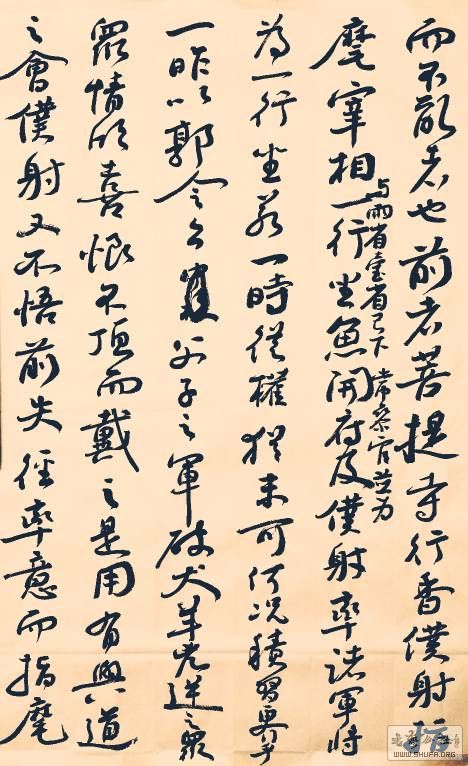 而不能者也前者菩提寺行香僕射指
麾宰相一行坐魚開府及僕射率諸軍將
与兩省臺省已下常參官並為
為一行坐若一時從權猶未可何況積習更
一昨以郭令公父子之軍破犬羊兇逆之眾
眾情欣喜恨不頂而戴之是用有興道
之會僕射又不悟前失徑率意而指麾
WWW.SHUFA.ORG